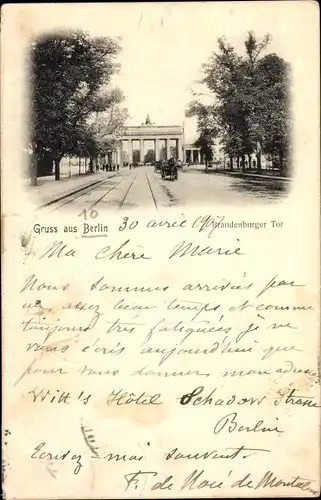 Gruss aus Berlin
Brandenburger Tor
10
30 avril 1907
Ma chère Marie
Nous sommes arrivés par
un assez beau temps et comme
toujours très fatiguées je ne
vous écris aujourd'hui que
pour vous donner mon adresse
Witt's Hôtel Schadow Strasse
Berlin
Ecrivez moi souvent.
F. de